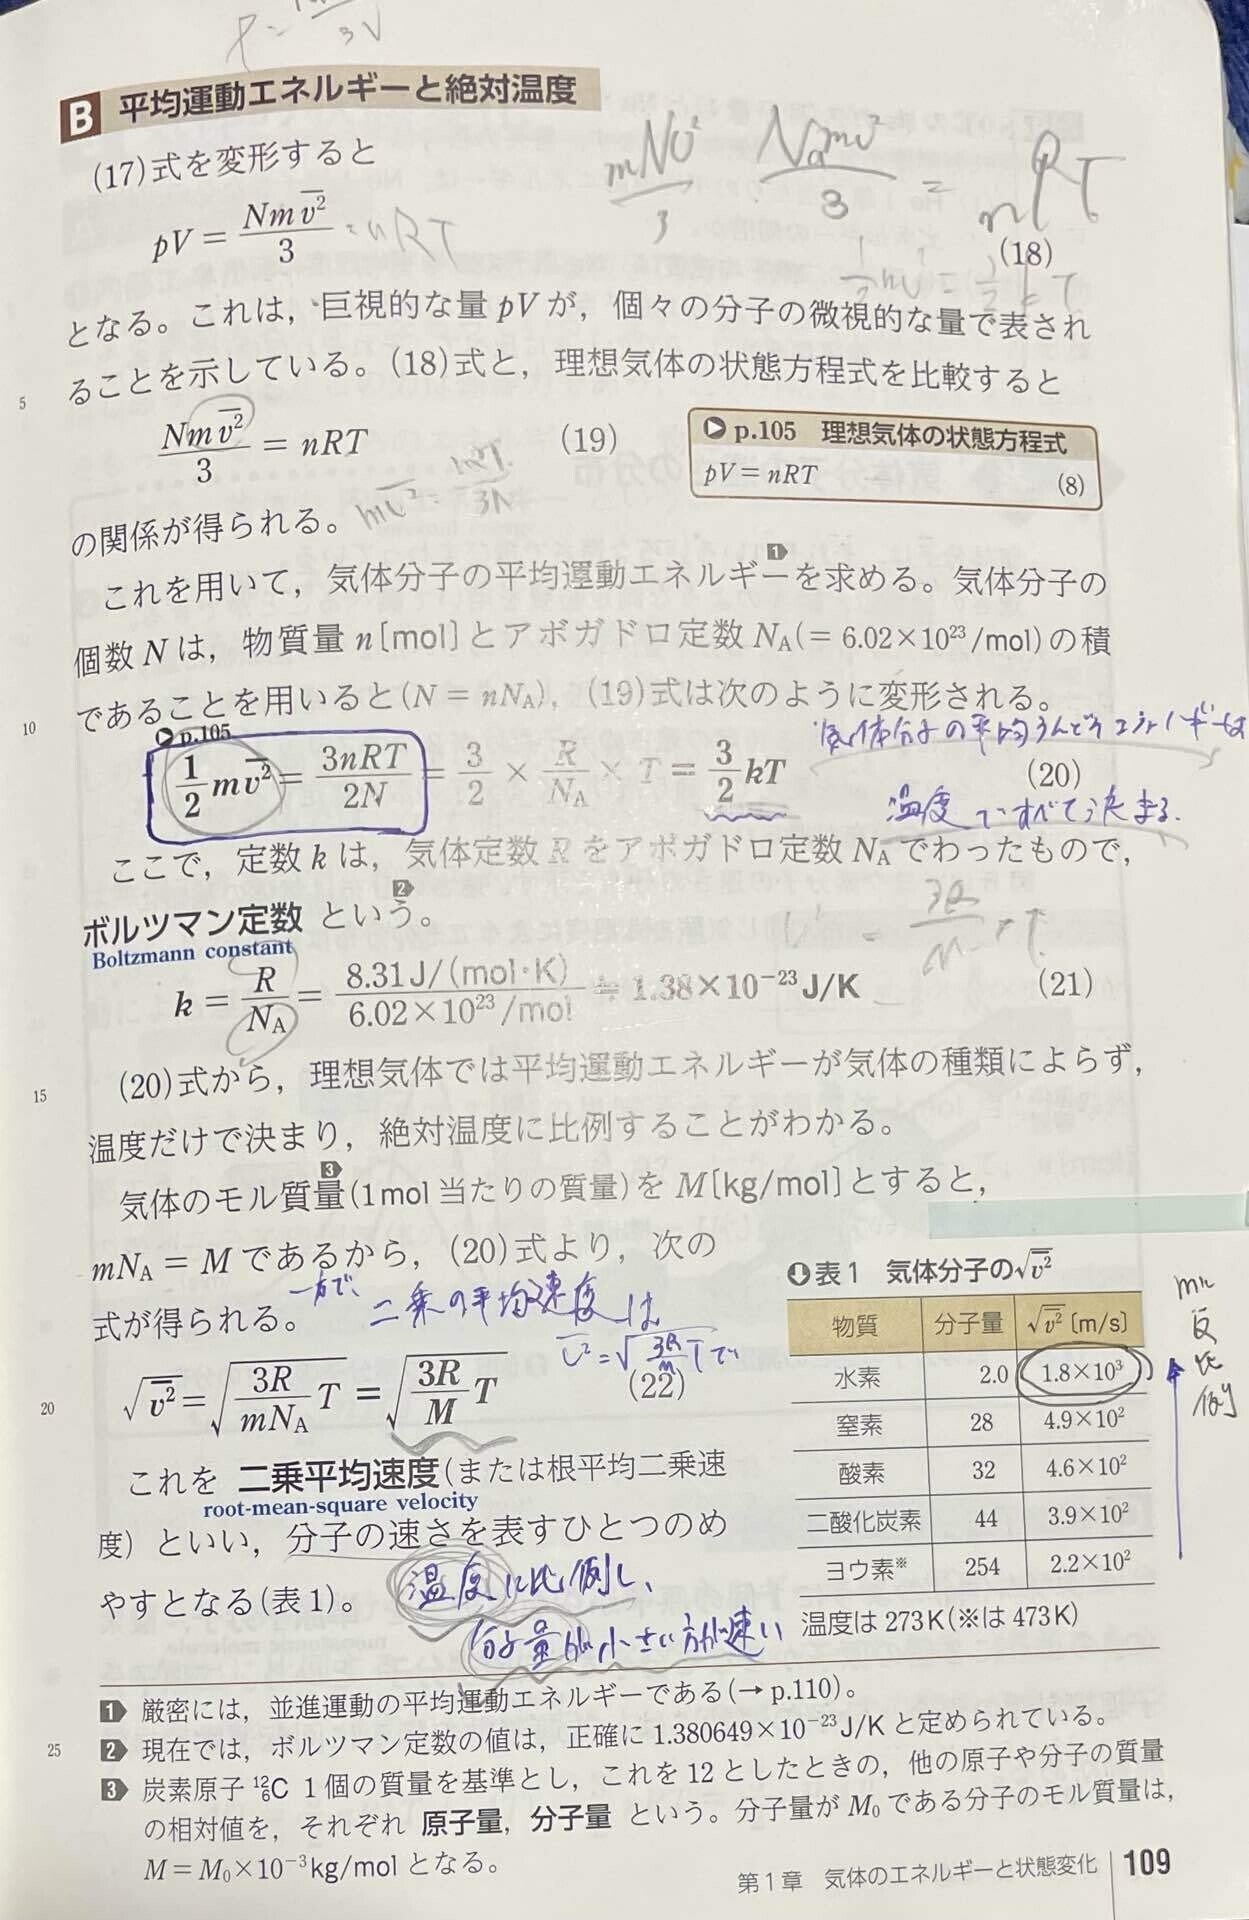 B 平均運動エネルギーと絶対温度
(17)式を変形すると
pV = Nmv̄²/3 = nRT (18)
mNv²/3 Nₐmv²/3 = nRT
となる。これは，巨視的な量 pV が，個々の分子の微視的な量で表され
ることを示している。(18)式と，理想気体の状態方程式を比較すると
5
Nmv̄²/3 = nRT (19)
▶ p.105 理想気体の状態方程式
pV = nRT (8)
の関係が得られる。
これを用いて，気体分子の平均運動エネルギー1を求める。気体分子の
個数 N は，物質量 n[mol]とアボガドロ定数 NA(= 6.02×10²³/mol)の積
であることを用いると(N = nNA)，(19)式は次のように変形される。
10
▶ p.105
1/2 mv̄² = 3nRT/2N = 3/2 × R/NA × T = 3/2 kT (20)
気体分子の平均うんどうエネルギーは
温度ですべて決まる.
ここで，定数 k は，気体定数 R をアボガドロ定数 NA でわったもので，
ボルツマン定数 という2。
Boltzmann constant
k = R/NA = 8.31 J/(mol·K)/6.02×10²³/mol ≒ 1.38×10⁻²³ J/K (21)
(20)式から，理想気体では平均運動エネルギーが気体の種類によらず，
15
温度だけで決まり，絶対温度に比例することがわかる。
気体のモル質量3(1mol 当たりの質量)を M[kg/mol]とすると，
mNA = M であるから，(20)式より，次の
式が得られる。
一方で、二乗の平均速度は
v̄² = √3R/m T で
√v̄² = √3R/mNA T = √3R/M T (22)
20
これを 二乗平均速度(または根平均二乗速
root-mean-square velocity
度) といい，分子の速さを表すひとつのめ
やすとなる(表1)。
温度に比例し、
分子量が小さい方が速い
表1 気体分子の√v̄²
物質 分子量 √v̄² [m/s]
水素 2.0 1.8×10³
窒素 28 4.9×10²
酸素 32 4.6×10²
二酸化炭素 44 3.9×10²
ヨウ素※ 254 2.2×10²
温度は 273K(※は 473K)
mに
反
比
例
1 厳密には，並進運動の平均運動エネルギーである(→ p.110)。
2 現在では，ボルツマン定数の値は，正確に 1.380649×10⁻²³J/K と定められている。
25
3 炭素原子 ¹²₆C 1個の質量を基準とし，これを 12 としたときの，他の原子や分子の質量
の相対値を，それぞれ 原子量，分子量 という。分子量が M₀ である分子のモル質量は，
M = M₀×10⁻³kg/mol となる。
第1章 気体のエネルギーと状態変化 109